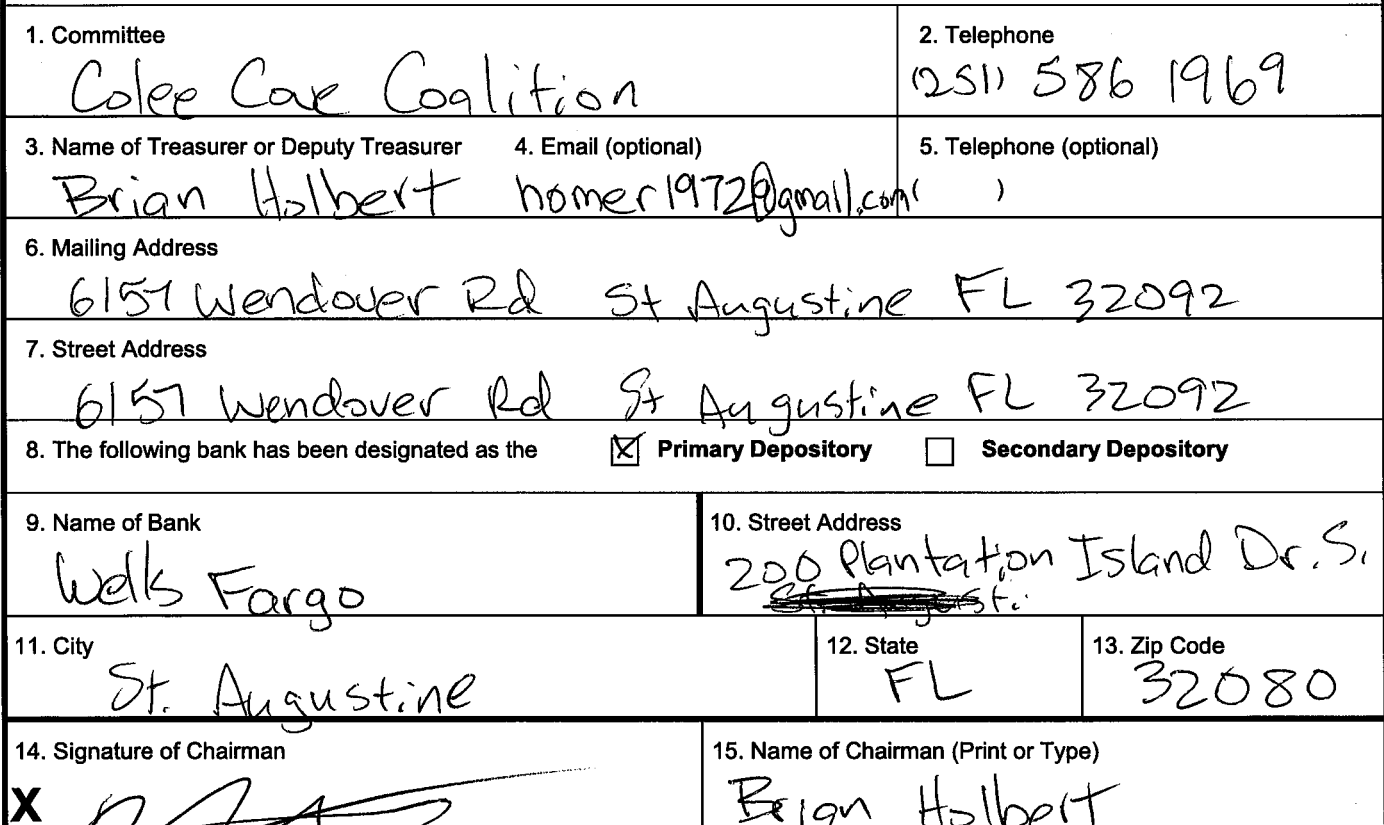 1. Committee
Colee Cove Coalition
2. Telephone
(251) 586 1969
3. Name of Treasurer or Deputy Treasurer
Brian Holbert
4. Email (optional)
homer1972@gmail.com
5. Telephone (optional)
( )
6. Mailing Address
6157 Wendover Rd St Augustine FL 32092
7. Street Address
6157 Wendover Rd St Augustine FL 32092
8. The following bank has been designated as the ☒ Primary Depository ☐ Secondary Depository
9. Name of Bank
Wells Fargo
10. Street Address
200 Plantation Island Dr. S.
11. City
St. Augustine
12. State
FL
13. Zip Code
32080
14. Signature of Chairman
X
15. Name of Chairman (Print or Type)
Brian Holbert